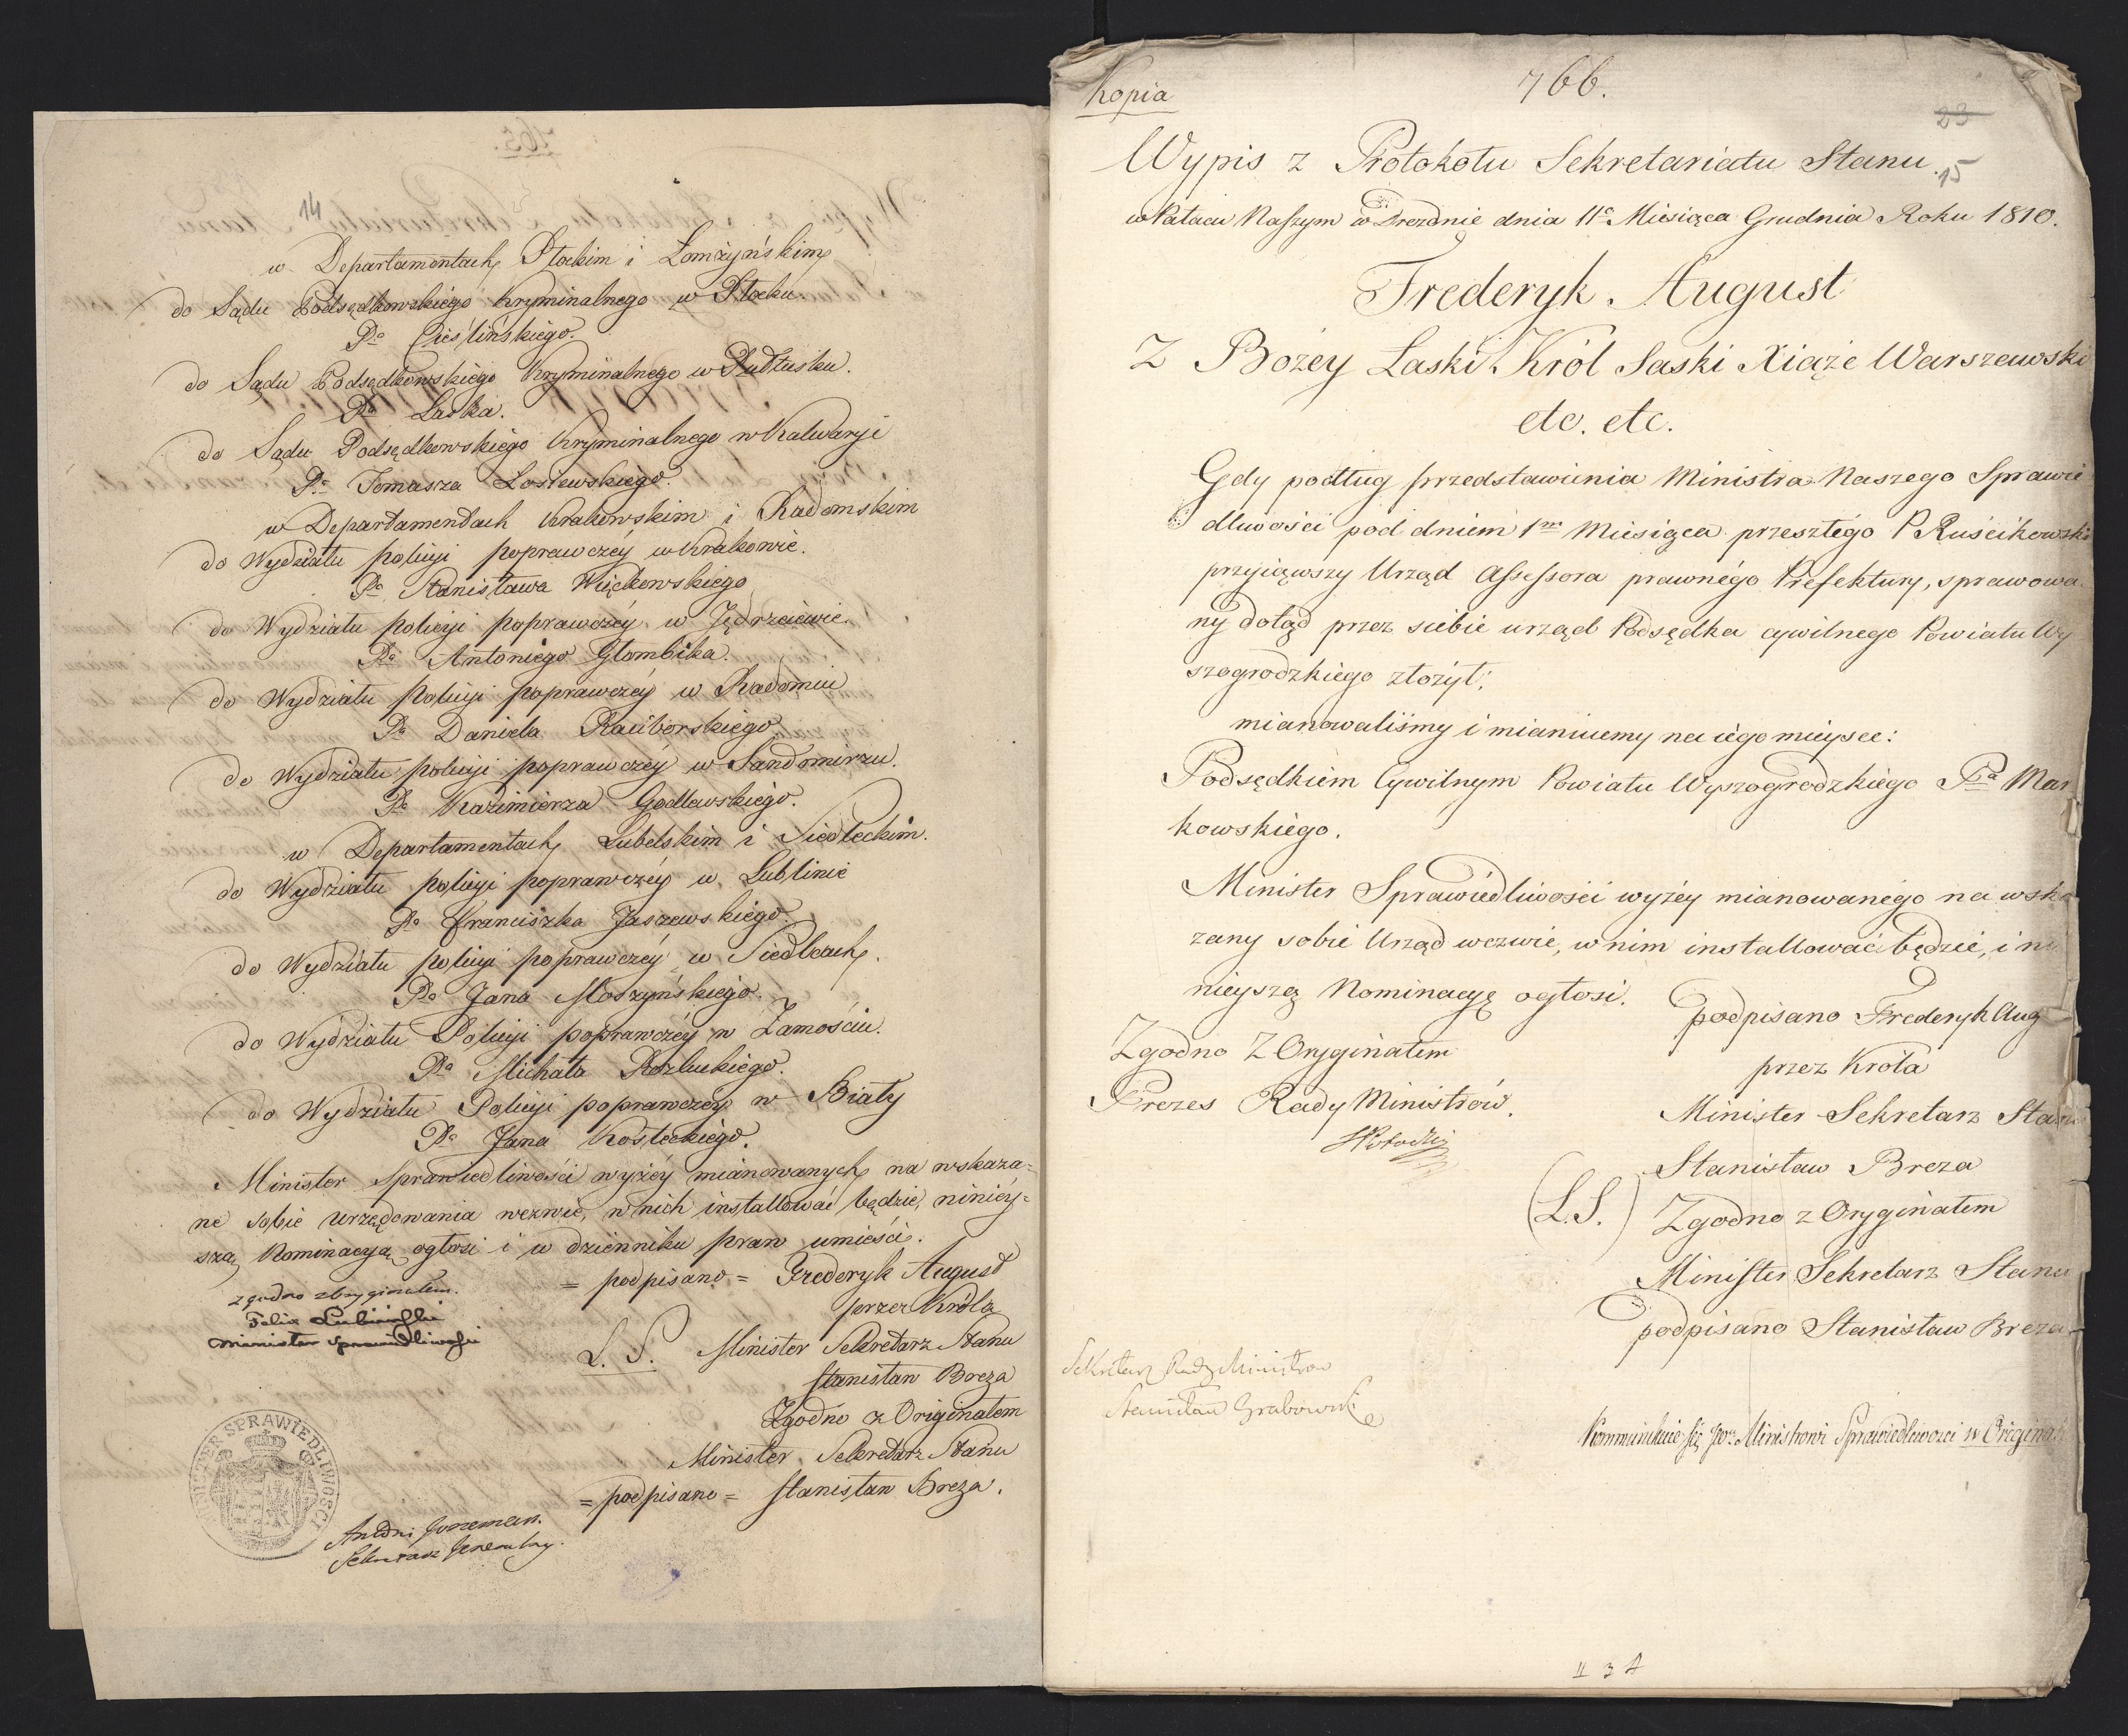 14
w Departamentach Płockim i Łomżyńskim
do Sądu Podsędkowskiego Kryminalnego w Płocku.
Pa Cieślińskiego.
do Sądu Podsędkowskiego Kryminalnego w Pułtusku.
Pa Laska.
do Sądu Podsędkowskiego Kryminalnego w Kalwaryi
Pa Tomasza Łosiewskiego.
w Departamentach Krakowskim i Radomskim
do Wydziału policyi poprawczéy w Krakowie.
Pa Stanisława Więckowskiego
do Wydziału policyi poprawczéy w Jędrzeiewie.
Pa Antoniego Głombika.
do Wydziału policyi poprawczéy w Radomiu
Pa Daniela Raciborskiego.
do Wydziału policyi poprawczéy w Sandomirzu.
Pa Kazimierza Godlewskiego.
w Departamentach Lubelskim i Siedleckim.
do Wydziału policyi poprawczéy w Lublinie
Pa Franciszka Jaszewskiego.
do Wydziału policyi poprawczéy w Siedlcach.
Pa Jana Moszyńskiego.
do Wydziału Policyi poprawczéy w Zamościu.
Pa Michała Rozłuckiego.
do Wydziału Policyi poprawczéy w Biały
Pa Jana Kosteckiego.
Minister Sprawiedliwości wyżéy mianowanych na wskaza=
ne sobie urzędowania wezwie, w nich installować będzie, ninićy=
szą Nominacyą ogłosi i w dzienniku praw umieści.
= podpisano = Fryderyk August
zgodno z Oryginałem.
przez Króla
Felix Lubieński
Minister Sprawiedliwości
L. S. Minister Sekretarz Stanu
Stanisław Breza
Zgodno z Originałem
Minister Sekretarz Stanu
= podpisano = Stanisław Breza.
MINISTER SPRAWIEDLIWOSCI
Sekretarz Jeneralny.
Kopia
766.
23
Wypis z Protokołu Sekretariatu Stanu.
15
w Pałacu Naszym w Dreznie dnia 11o Miesiąca Grudnia Roku 1810.
Frederyk August
Z Bożey Łaski Król Saski Xiąże Warszewski
etc. etc.
Gdy podług przedstawienia Ministra Naszego Sprawie
dliwości pod dniem 1m Miesiąca przeszłego P Ruścikowski
przyiąwszy Urząd Assessora prawnégo Prefektury, sprawowa
ny dotąd przez siebie urząd Podsędka cywilnego Powiatu Wy
szogrodzkiego złożył;
mianowaliśmy i mianuiemy na iégo mieysce:
Podsędkiem Cywilnym Powiatu Wyszogrodzkiego Pa Mar
kowskiego.
Minister Sprawiedliwości wyżéy mianowanégo na wska
zany sobie Urząd wezwie, w nim installować będzie, i ni
nieyszą Nominacyę ogłosi.
podpisano Frederyk Aug
Zgodno Z Oryginałem
przez Króla
Prezes Rady Ministrów.
Minister Sekretarz Stanu
Stanisław Breza
(L.S.) Zgodno z Oryginałem
Minister Sekretarz Stanu
podpisano Stanisław Breza
Sekretarz Rady Ministrow
Stanisław Grabowski
Kommunikuie się JW. Ministrowi Sprawiedliwosci w Original